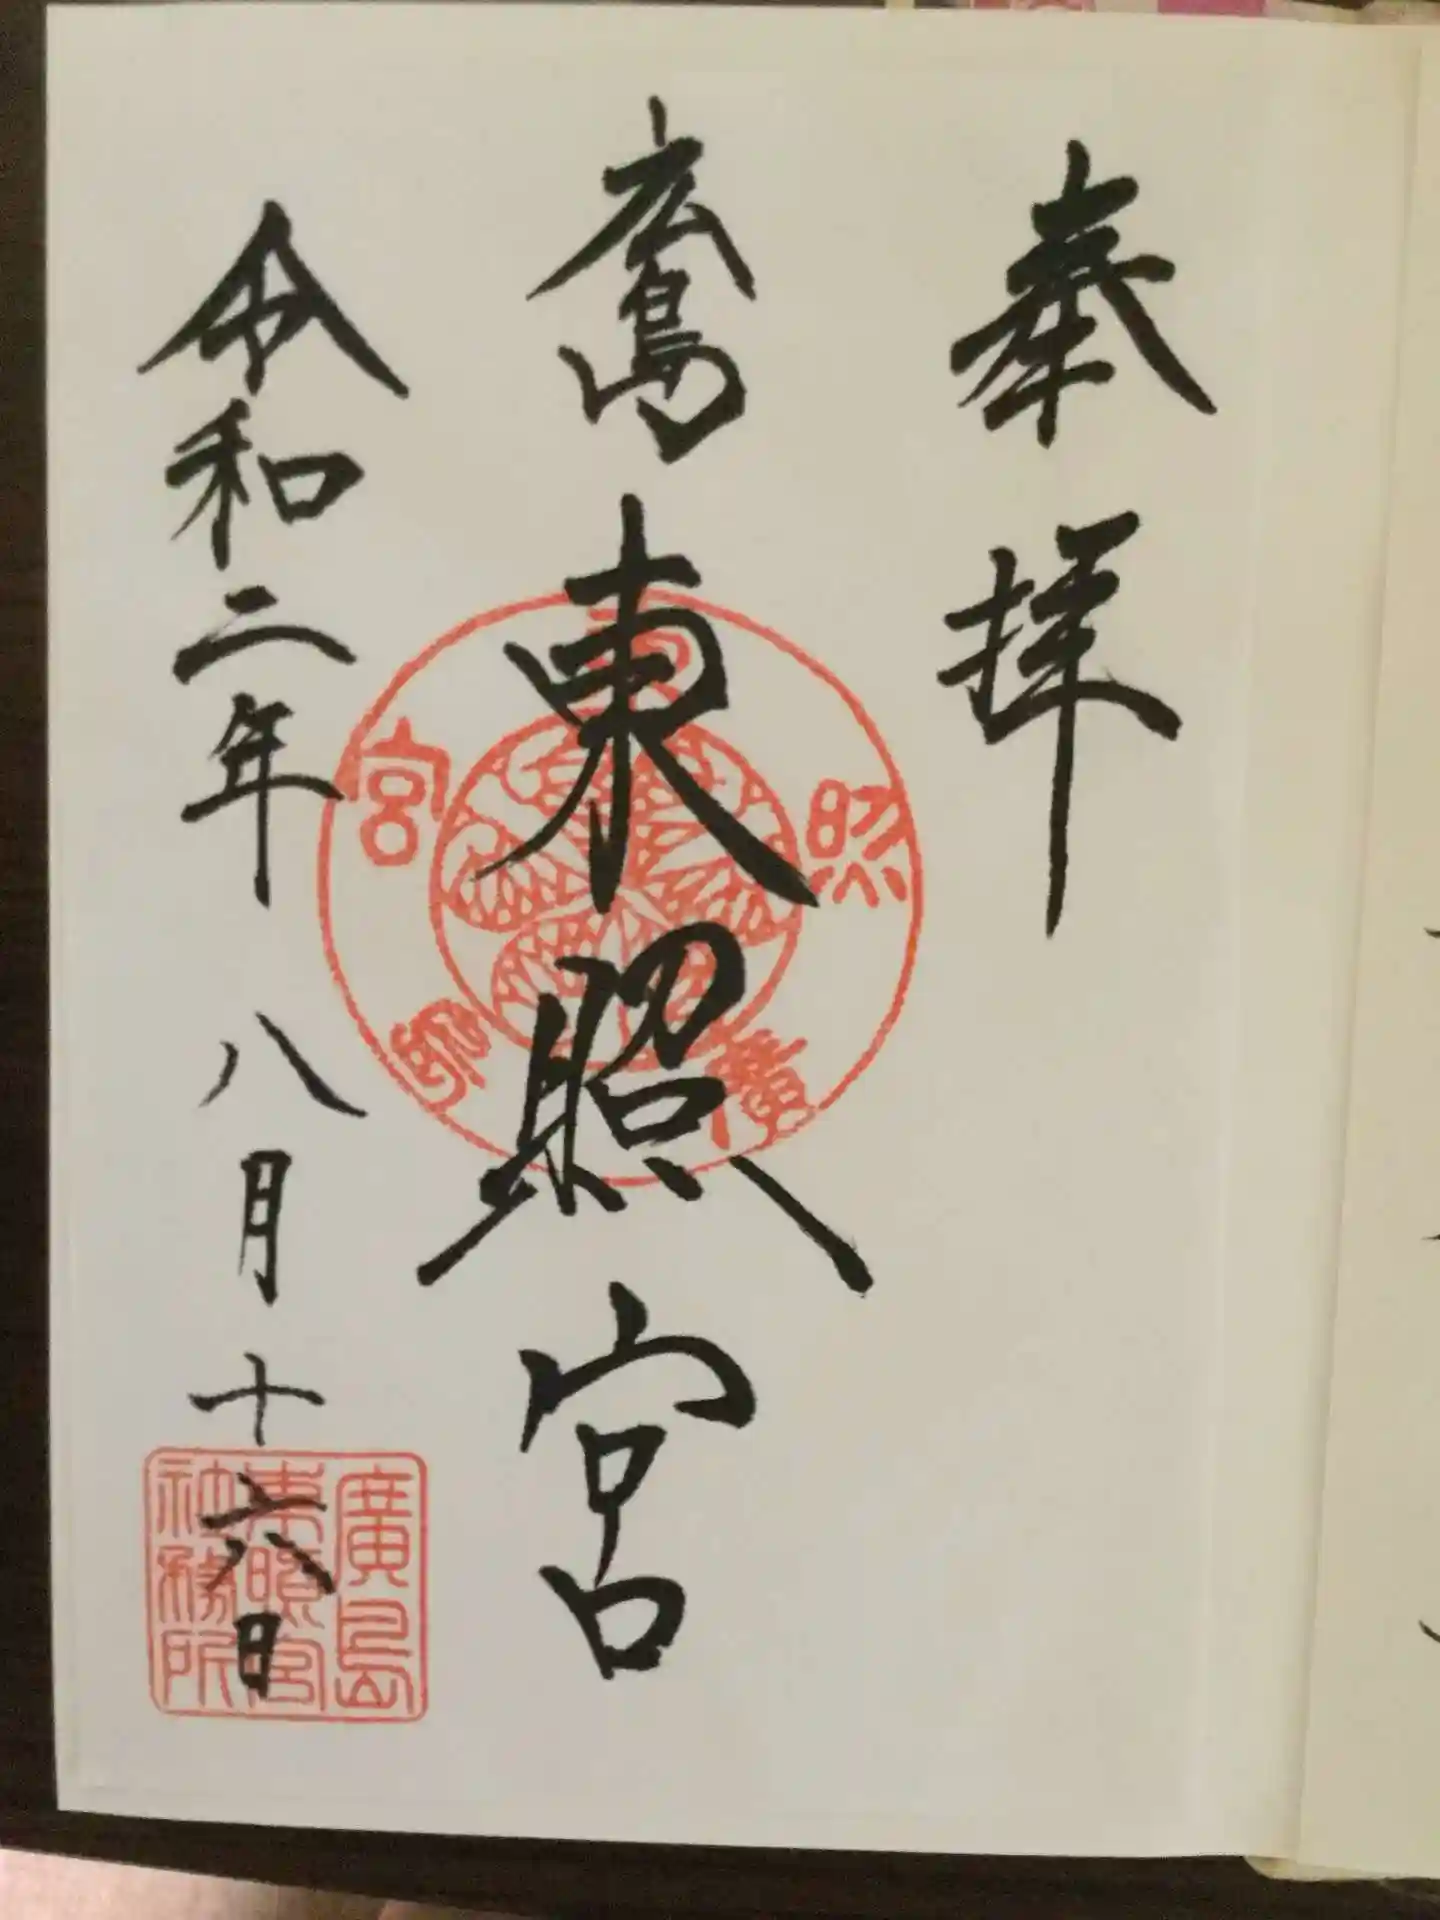 奉拝
広島東照宮
令和二年八月十六日
東照宮
廣島
廣島
東照宮
社務所